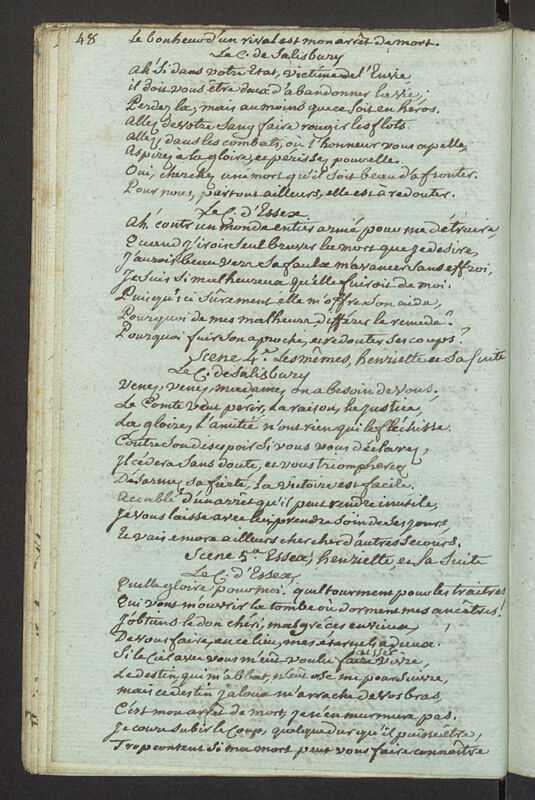 48
Le bonheur d'un rival est mon arrêt de mort.
Le C. de Salisbury
Ah! Si dans votre Etat, victime de l'Envie
il doit vous être doux d'abandonner la vie;
Perdez la; mais au moins que ce soit en héros.
Allez de votre sang faire rougir les flots.
Allez dans les combats, où l'honneur vous appelle,
Aspirez a la gloire, et périssez pour elle.
Oui, cherchez une mort qu'il soit beau d'afronter.
Pour nous, partout ailleurs, elle est à redouter.
Le C. d'Essex
Ah! contr'un monde entier armé pour me détruire,
Quand j'irois seul braver la mort que je desire,
J'aurois beau vers sa faulx m'avancer sans effroi,
Je suis si malheureux qu'elle fuiroit de moi.
Puisqu'ici sûrement elle m'offre son aide,
Pourquoi de mes malheurs différer le remede?
Pourquoi fuir son aproche, et redouter ses coups?
Scene 4e. Les mêmes, henriette et sa suite
Le C. de Salisbury
Venez, venez, madame, on a besoin de vous.
Le Comte veut périr, la raison, la justice,
La gloire, l'amitié n'ont rien qui le fléchisse.
Contre son desespoir si vous vous déclarez,
Il cédera sans doute, et vous triompherez
Désarmez sa fierté, la victoire est facile.
Accablé d'un arrêt qu'il peut rendre inutile,
Je vous laisse avec lui prendre soin de ses jours,
Et vais encore ailleurs chercher d'autres secours.
Scene 5e. Essex, henriette et sa Suite
Le C. d'Essex
Quelle gloire pour moi, quel tourment pour les traitres
Qui vont m'ouvrir la tombe où dorment mes ancêtres!
J'obtiens le don chéri, malgré ces envieux,
De vous faire, en ce lieu, mes éternels adieux.
Si le Ciel avec vous m'eut voulu laisser vivre,
Le destin, qui m'abbat, n'eut osé me poursuivre,
mais ce destin jaloux m'arrache de vos bras,
C'est mon arrêt de mort, je n'en murmure pas.
Je cours subir le Coup, quelque dur qu'il puisse être,
Trop content si ma mort peut vous faire connoître